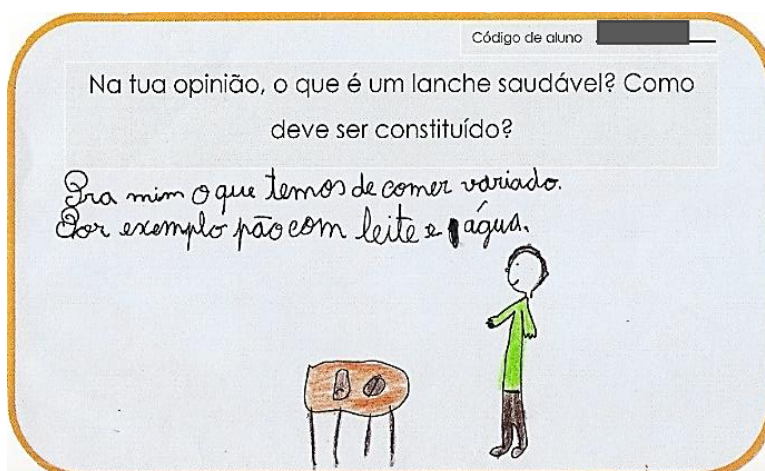 Código de aluno
Na tua opinião, o que é um lanche saudável? Como
deve ser constituído?
Pra mim o que temos de comer variado.
Por exemplo pão com leite e água.